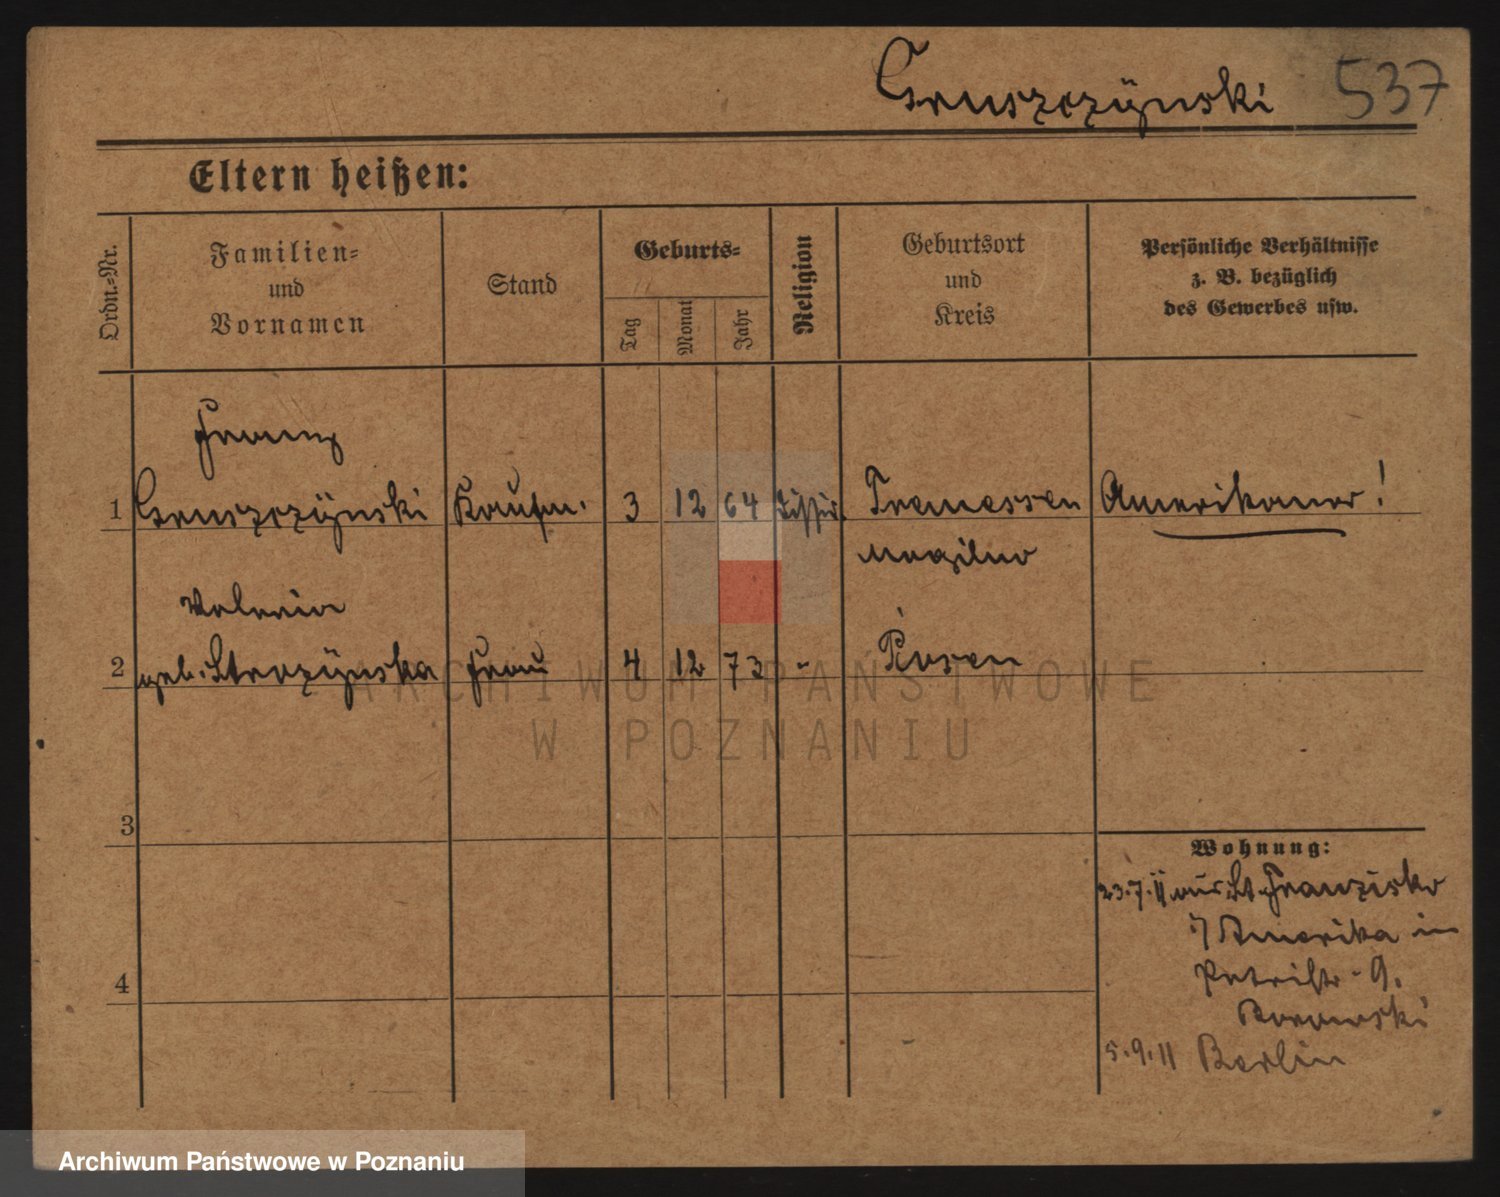 Gruszczÿnski 537
Eltern heißen:
Ordn.-Nr.
Familien-
und
Vornamen
Stand
Geburts-
Tag
Monat
Jahr
Religion
Geburtsort
und
Kreis
Persönliche Verhältnisse
z. B. bezüglich
des Gewerbes usw.
Franz
1 Gruszczÿnski Kaufm. 3 12 64 Tremessen Amerikaner!
Mogilno
Valeria
2 geb. Frau 4 12 73 " Posen
ARCHIWUM PAŃSTWOWE
W POZNANIU
3
Wohnung:
23.7.11 aus St. Franzisko
i/ Amerika in
4 Petristr. 9.
5.9.11 Berlin
Archiwum Państwowe w Poznaniu